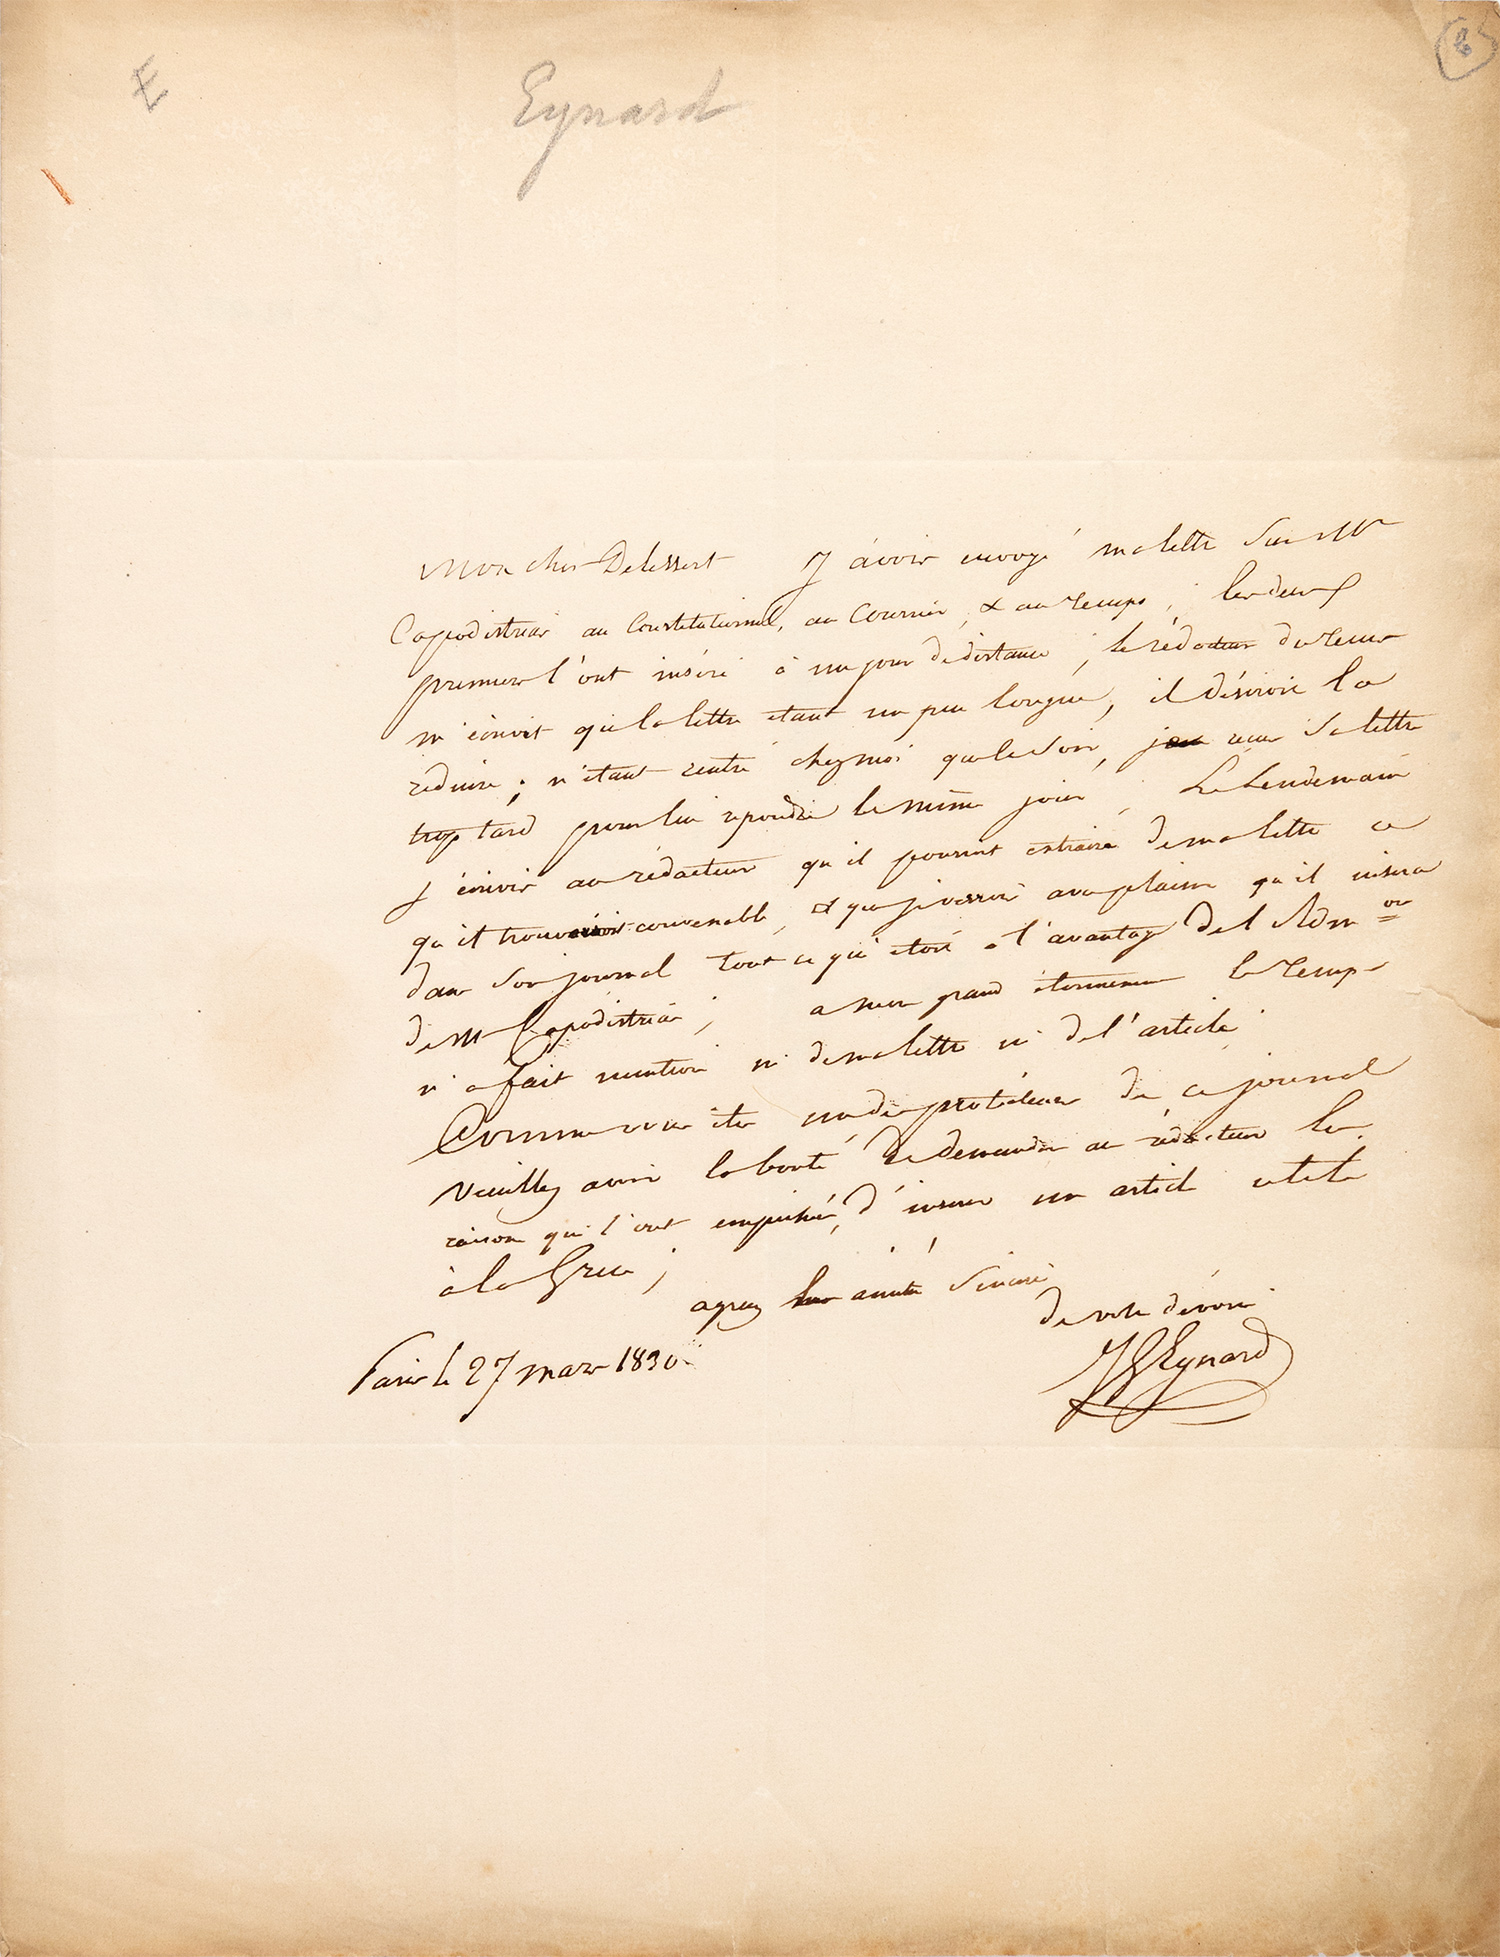 E
Eynard
Mon cher Delessert J'avois envoyé ma lettre sur Mr
Capodistrias au Constitutionnel, au Courrier, & au Temps; les deux
premiers l'ont inséré à un jour de distance; le rédacteur du Temps
m'écrivit que la lettre etant un peu longue, il désiroit la
reduire; n'étant rentré chez moi que le soir, je reçus sa lettre
trop tard pour lui repondre le même jour, Le Lendemain
j'écrivis au rédacteur qu'il pouvait extraire de ma lettre ce
qu'il trouveroit convenable, & que je verrois avec plaisir qu'il insera
dans son journal tout ce qui etoit a l'avantage de l'Adm.on
de Mr Capodistrias; a mon grand étonnement le Temps
n'a fait mention ni de ma lettre ni de l'article.
Comme vous êtes un des protecteurs de ce journal
Veuillez avoir la bonté de demander au rédacteur les
raisons qui l'ont empêché, d'insérer un article utile
à la Grèce;
agréez amitié sincère
de votre dévoué
JGEynard
Paris le 27 mars 1830.